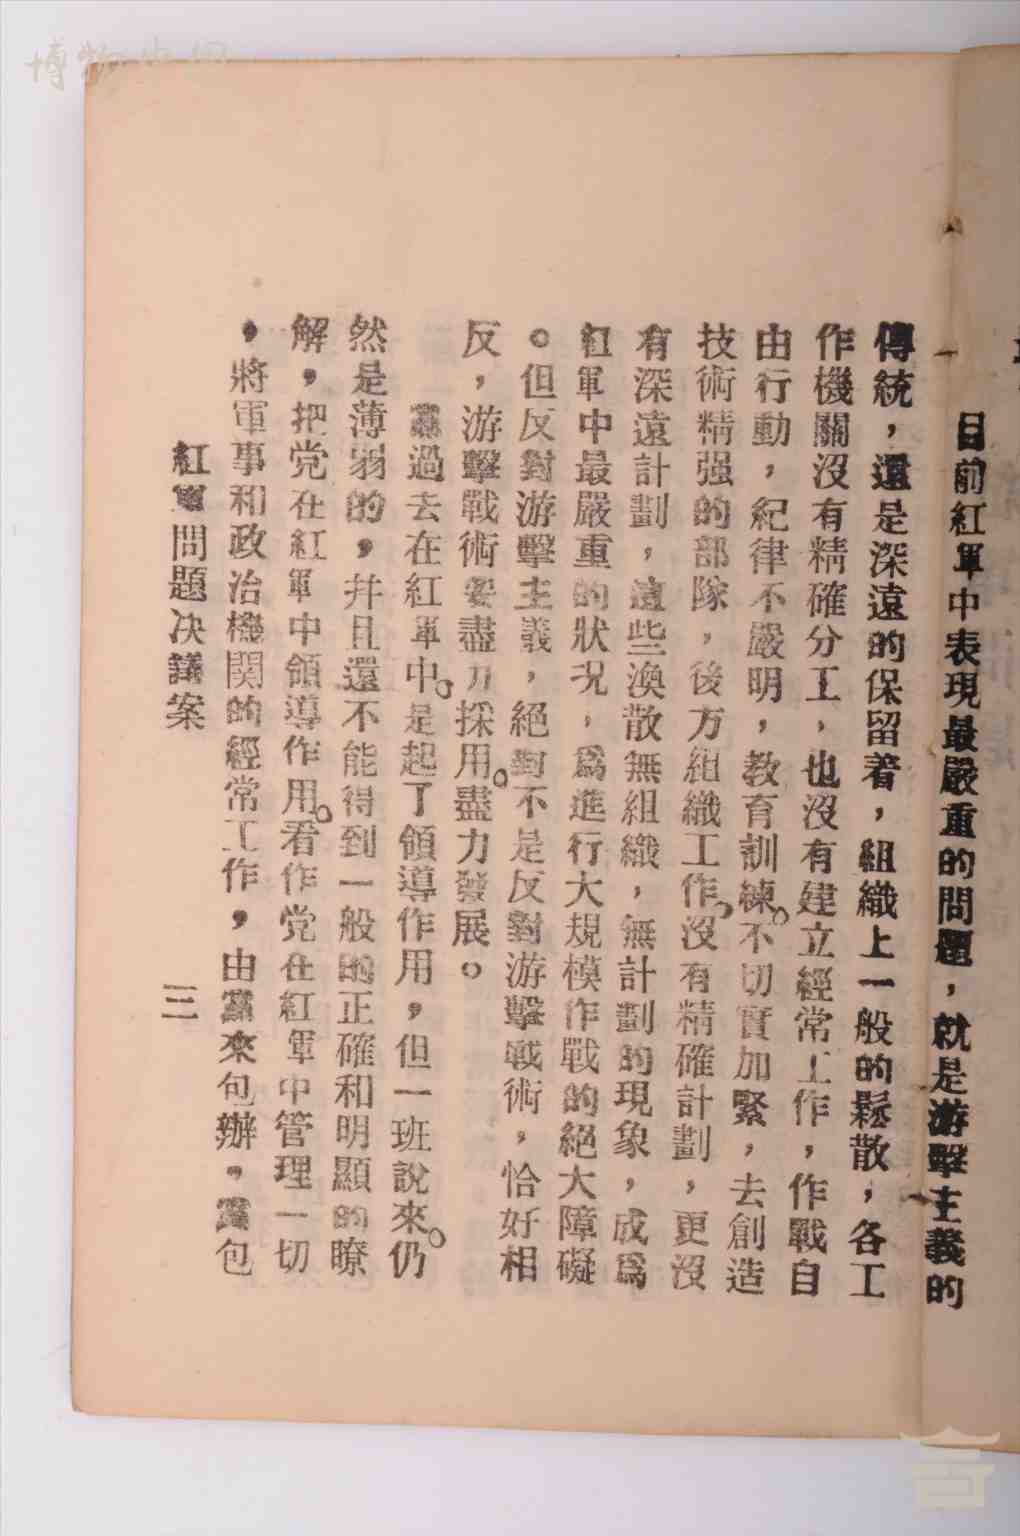 目前紅軍中表現最嚴重的問題，就是游擊主義的
傳統，還是深遠的保留着，組織上一般的鬆散，各工
作機關沒有精確分工，也沒有建立經常工作，作戰自
由行動，紀律不嚴明，教育訓練。不切實加緊，去創造
技術精强的部隊，後方組織工作。沒有精確計劃，更沒
有深遠計劃，這些渙散無組織，無計劃的現象，成爲
紅軍中最嚴重的狀况，爲進行大規模作戰的絕大障礙
。但反對游擊主義，絕對不是反對游擊戰術，恰好相
反，游擊戰術要盡力採用。盡力發展。
黨過去在紅軍中。是起了領導作用，但一班說來。仍
然是薄弱的，并且還不能得到一般的正確和明顯的瞭
解，把党在紅軍中領導作用。看作党在紅軍中管理一切
，將軍事和政治機関的經常工作，由黨來包辦，黨包
紅軍問題決議案
三
博物中国